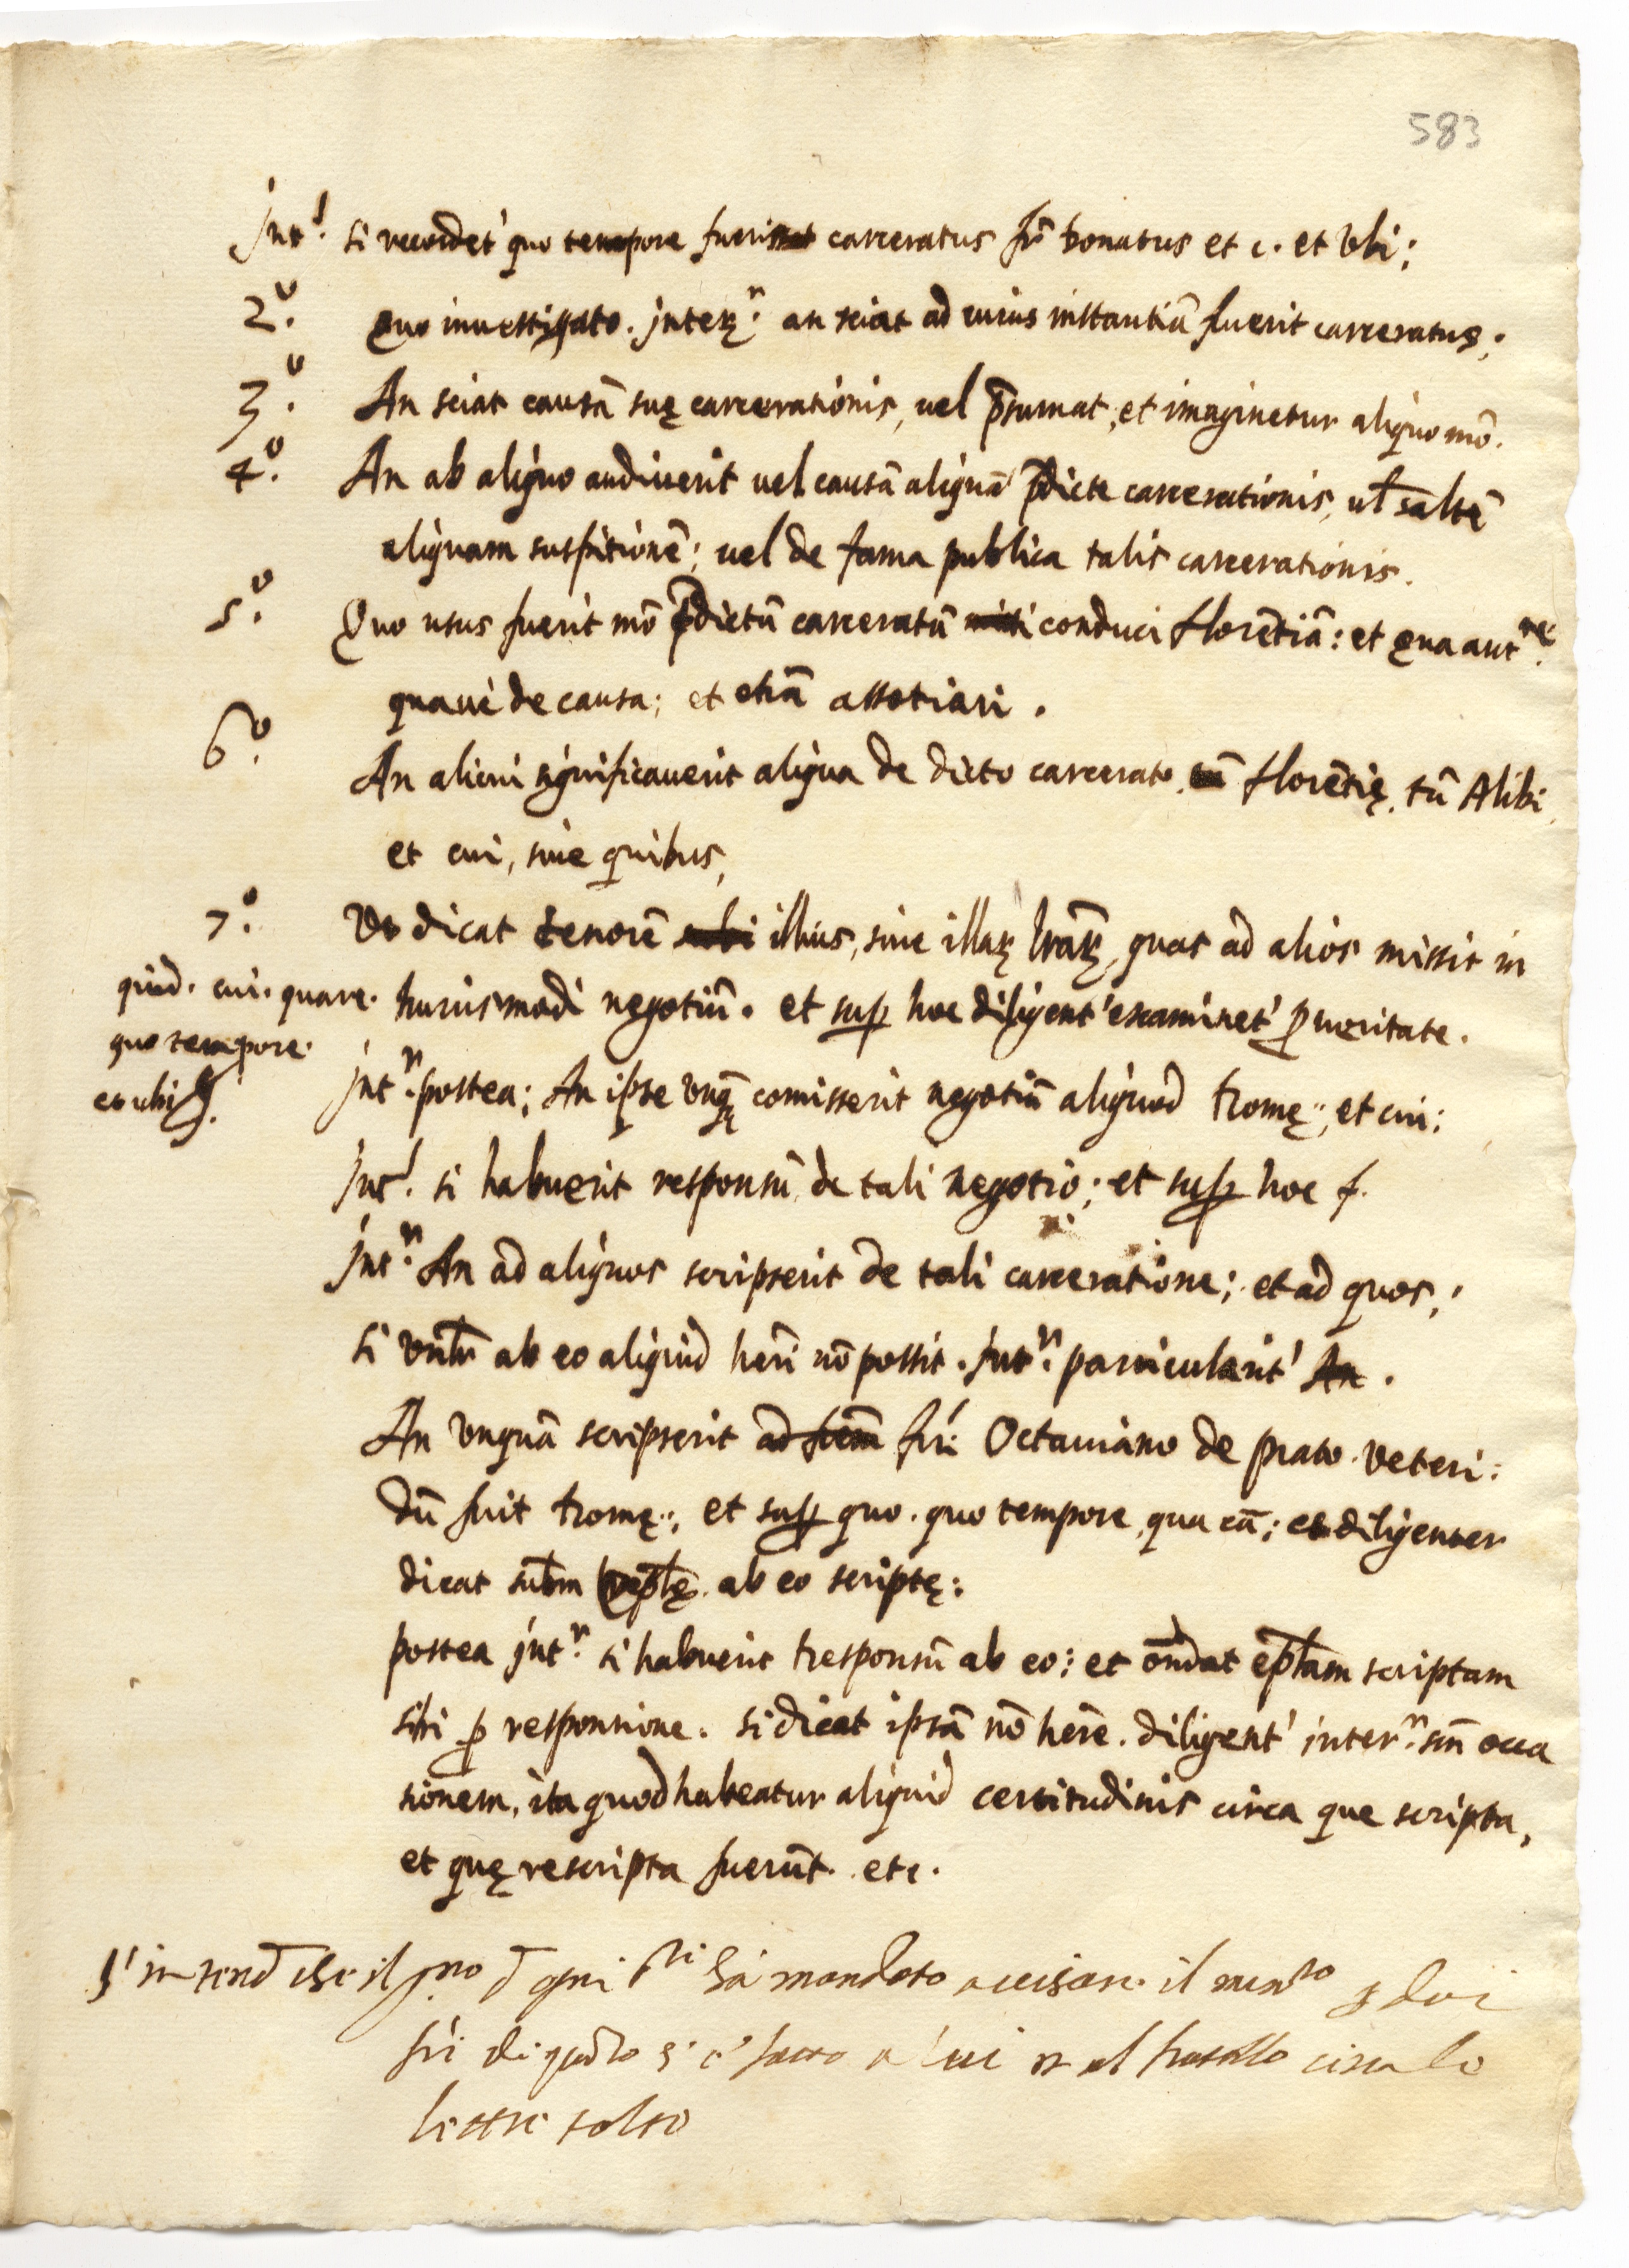 583
Int.r si recordet' quo tempore fuerit carceratus fr. bonatus et c. et Vbi;
2.o Quo inuestigato. interr.r an sciat ad cuius instantiā fuerit carceratus;
3.o An sciat causā suę carcerationis, uel p̄sumat, et imaginetur aliquo mō.
4.o An ab aliquo audiuerit uel causā aliquā p̄dicte carcerationis, ul̄ saltē
aliquam suspitionē; uel de fama publica talis carcerationis.
5.o Quo usus fuerit mō p̄dictū carceratū conduci florētiā: et qua aut.te
quaue de causa; et etiā assotiari.
6.o An alicui significauerit aliqua de dicto carcerato florētię, tū Alibi,
et cui, siue quibus,
7.o Vt dicat tenorē illius, siue illaꝝ lr̄aꝝ, quas ad alios missit in
quid. cui. quare. huiusmodi negotiū. et suꝑ hoc diligent' examinet' ꝓ ueritate.
quo tempore.
et ubi
int.r postea; An ipse vnqȝ comisserit negotiū aliquod Romę; et cui:
int.r si habuerit responsū de tali negotio; et suꝑ hoc
int.r An ad aliquos scripserit de tali carceratione; et ad quos;
si ab eo aliquid her̄i nō possit. int.r particularit'
An vnquā scripserit fr̄i Octauiano de prato veteri:
dū fuit Romę; et suꝑ quo. quo tempore, qua cā; et diligenter
dicat sub̄m ab eo scriptę:
postea int.r si habuerit Responsū ab eo: et on̄dat ep̄lam scriptam
sibi ꝓ responsione. si dicat ipsā nō her̄e. diligent' inter.r occa
sionem, ita quod habeatur aliquid certitudinis circa que scripta,
et quę rescripta fuerūt. etc.
S'intend che il ha mandato accisare il
fri di è facto a lui et al fratello circa le
lettre